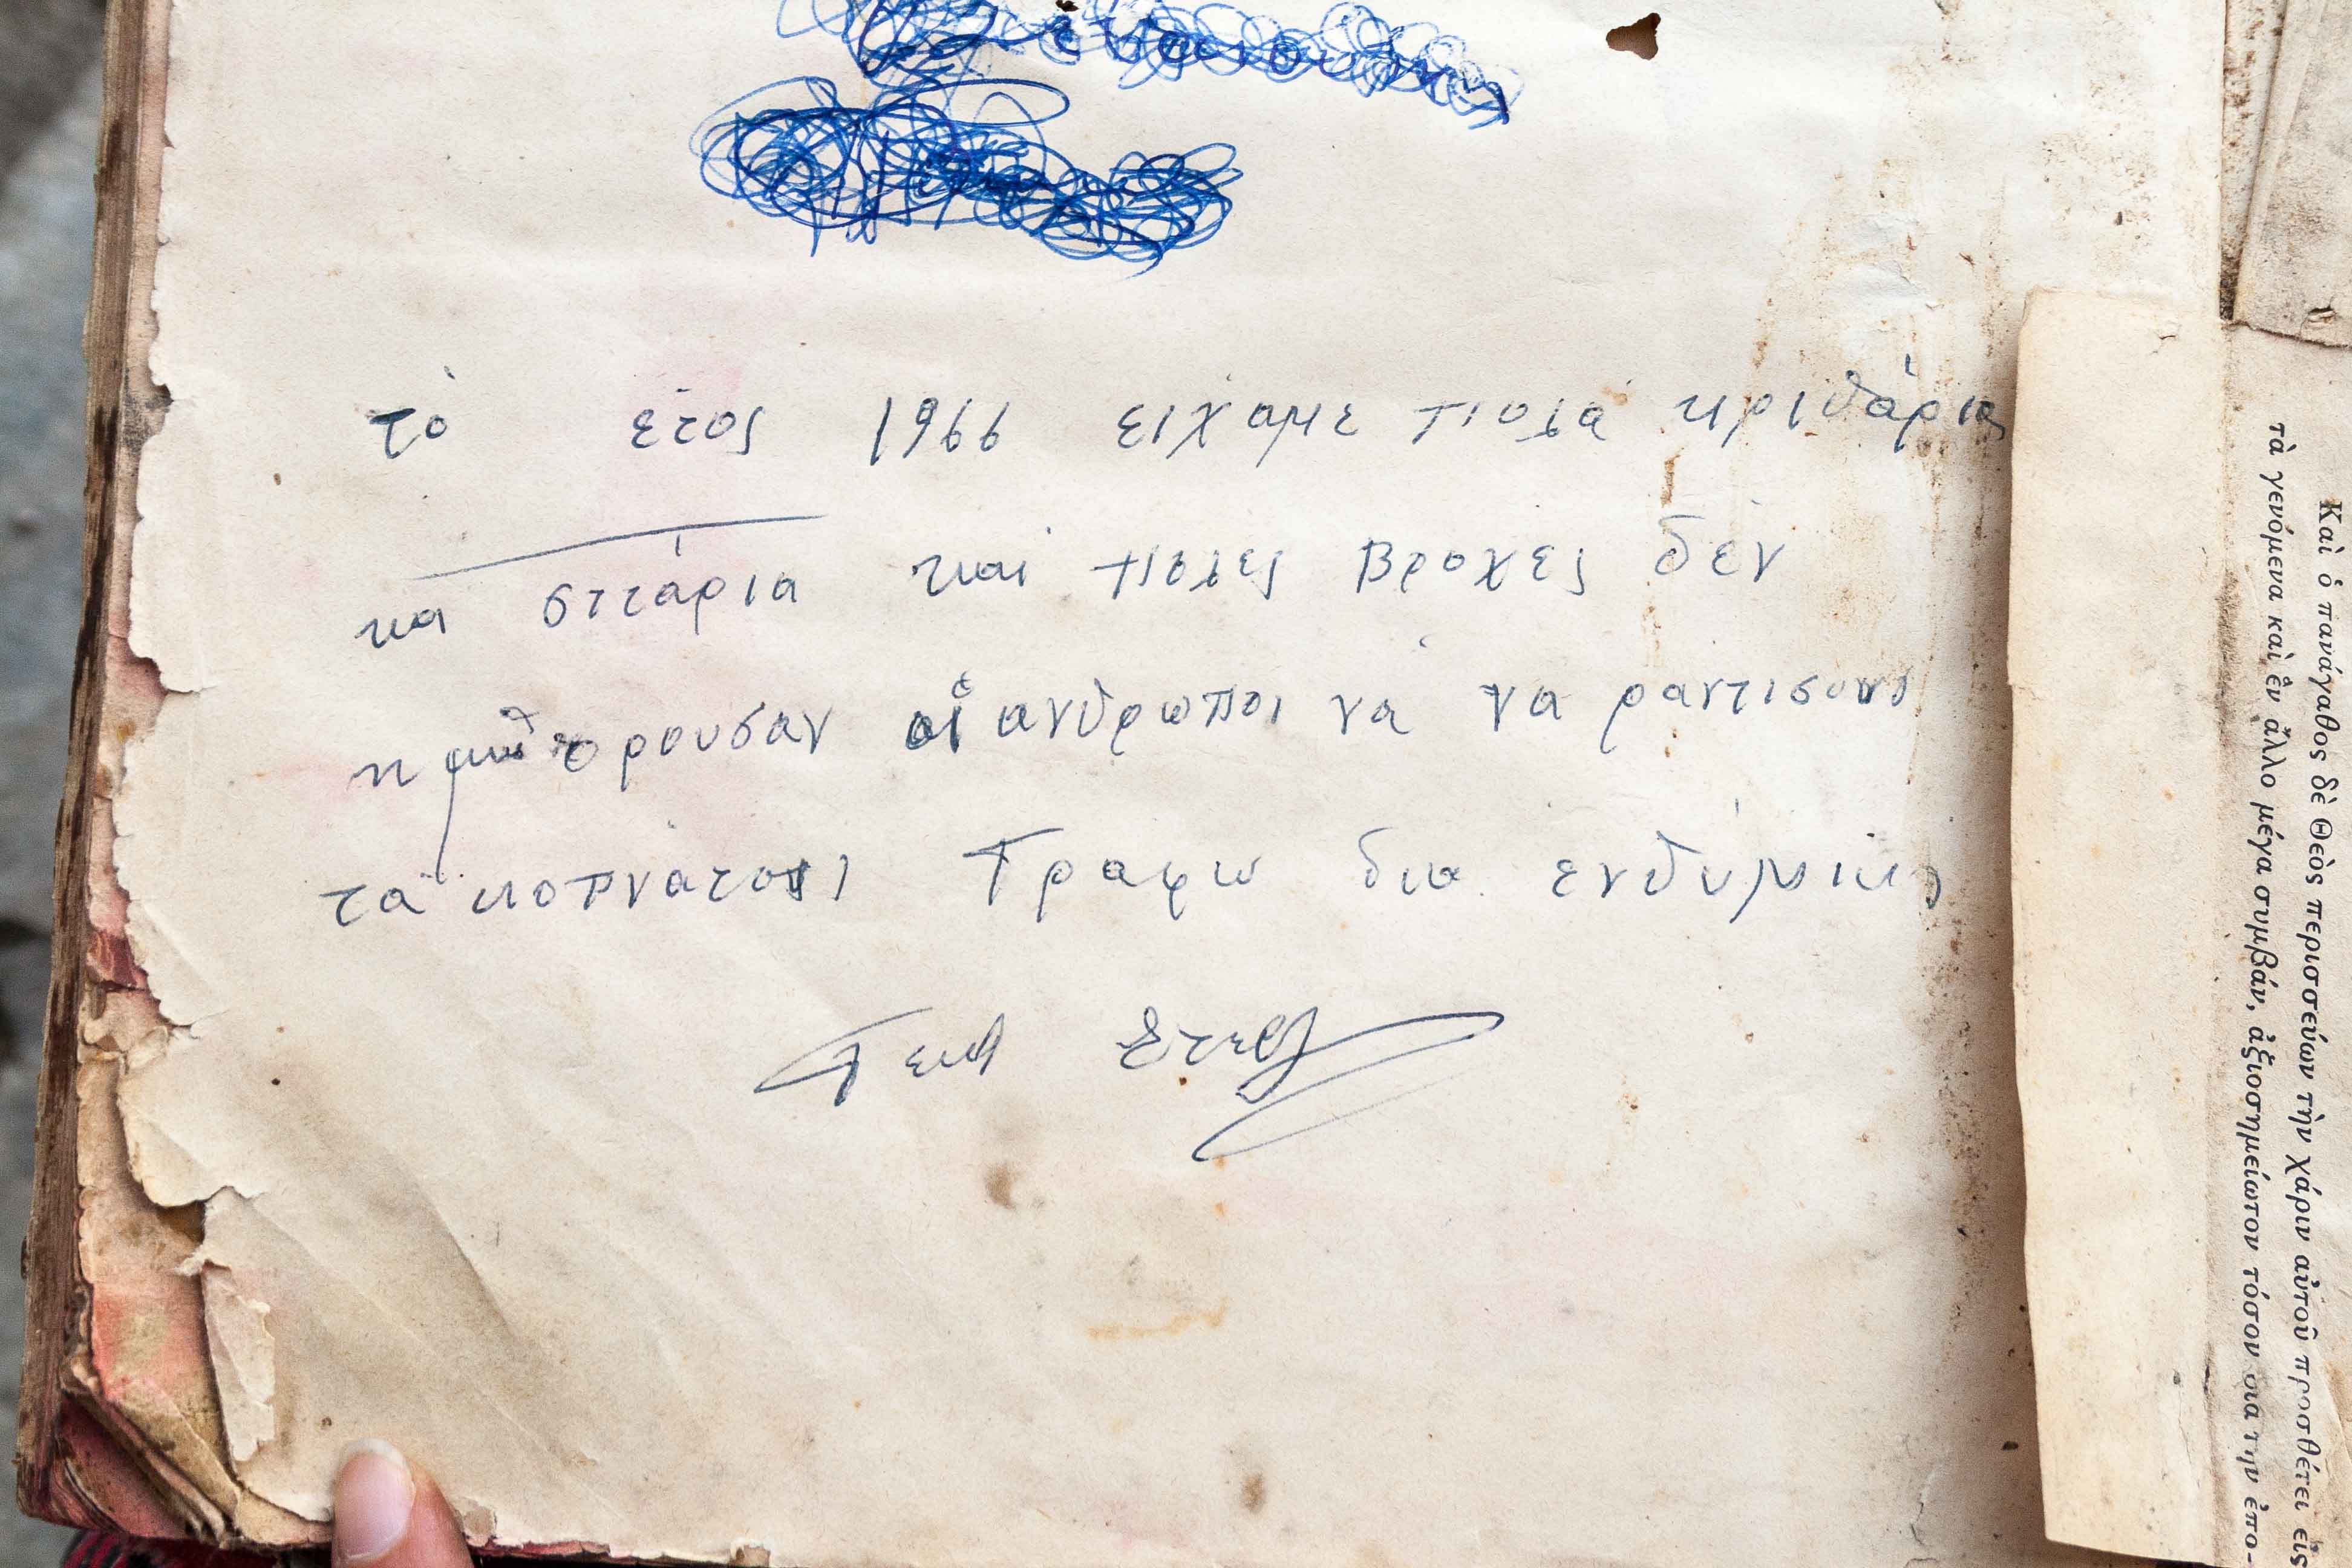 τὸ ἔτος 1966 ειχαμε πιοτά κριθάρια
κα σιτάρια και πιοτες Βροχες δὲν
ρουσαν οἱ ανθρωποι να να ραντισουν
τα Γραφω δια ενθύμιις
Γεωρ Στεφ
Καὶ ὁ πανάγαθος δὲ Θεὸς περισσεύων τὴν χάριν αὐτοῦ προσθέτει εἰς
τὰ γενόμενα καὶ ἓν ἄλλο μέγα συμβάν, ἀξιοσημείωτον τόσον διὰ τὴν ἐπο-